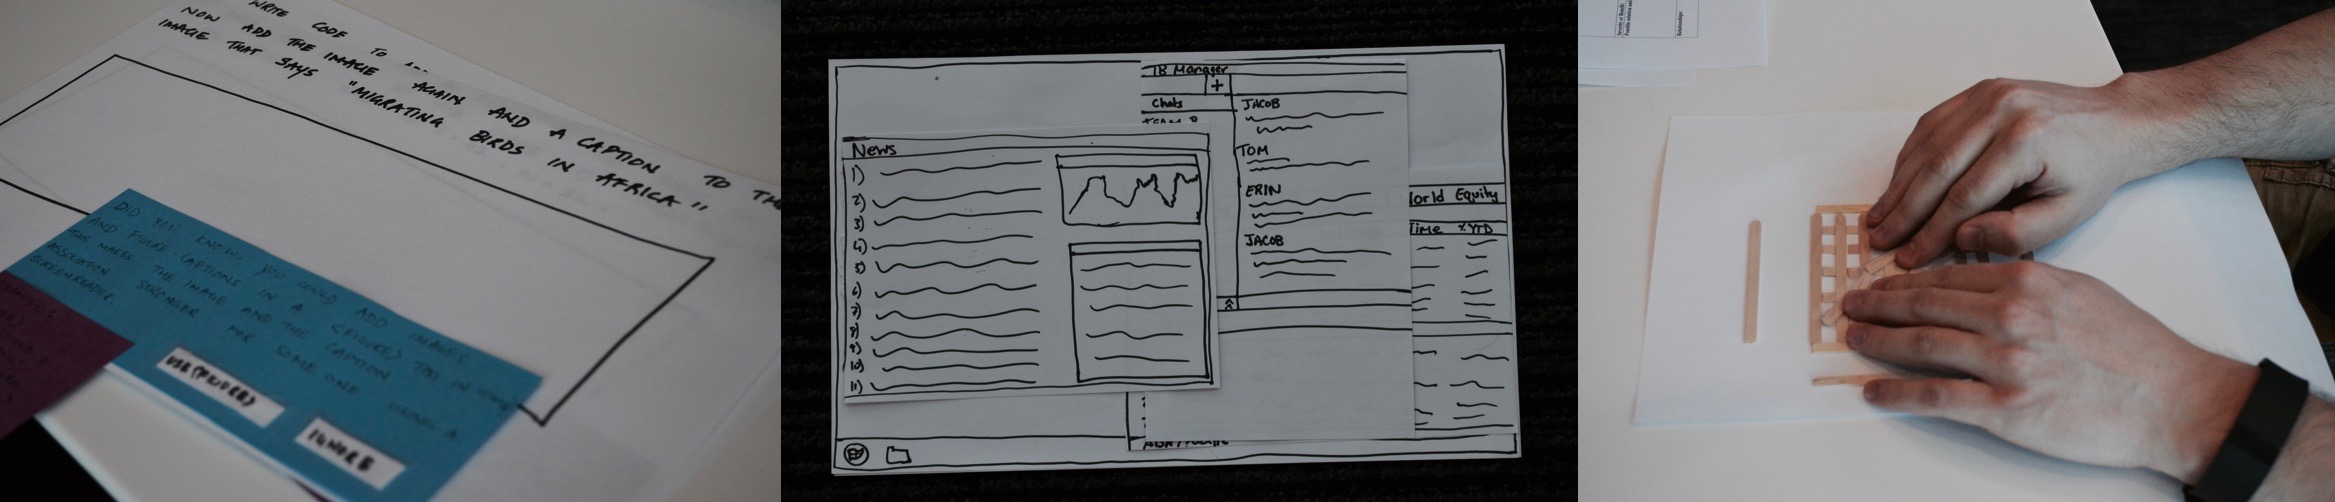 WRITE CODE TO ...
NOW ADD THE IMAGE AGAIN AND A CAPTION TO TH
IMAGE THAT SAYS "MIGRATING BIRDS IN AFRICA"
DID YOU KNOW, YOU COULD ADD IMAGES
AND FIGURE-CAPTIONS IN A <FIGURE> TAG IN
THIS MAKES THE IMAGE AND THE CAPTION
ASSOCIATION STRONGER FOR SOME ONE USING A
SCREENREADER.
IGNORE
News
1)
2)
3)
4)
5)
6)
7)
8)
9)
10)
11)
IB Manager
+
Chats
JACOB
TOM
ERIN
JACOB
orld Equity
Time % YTD